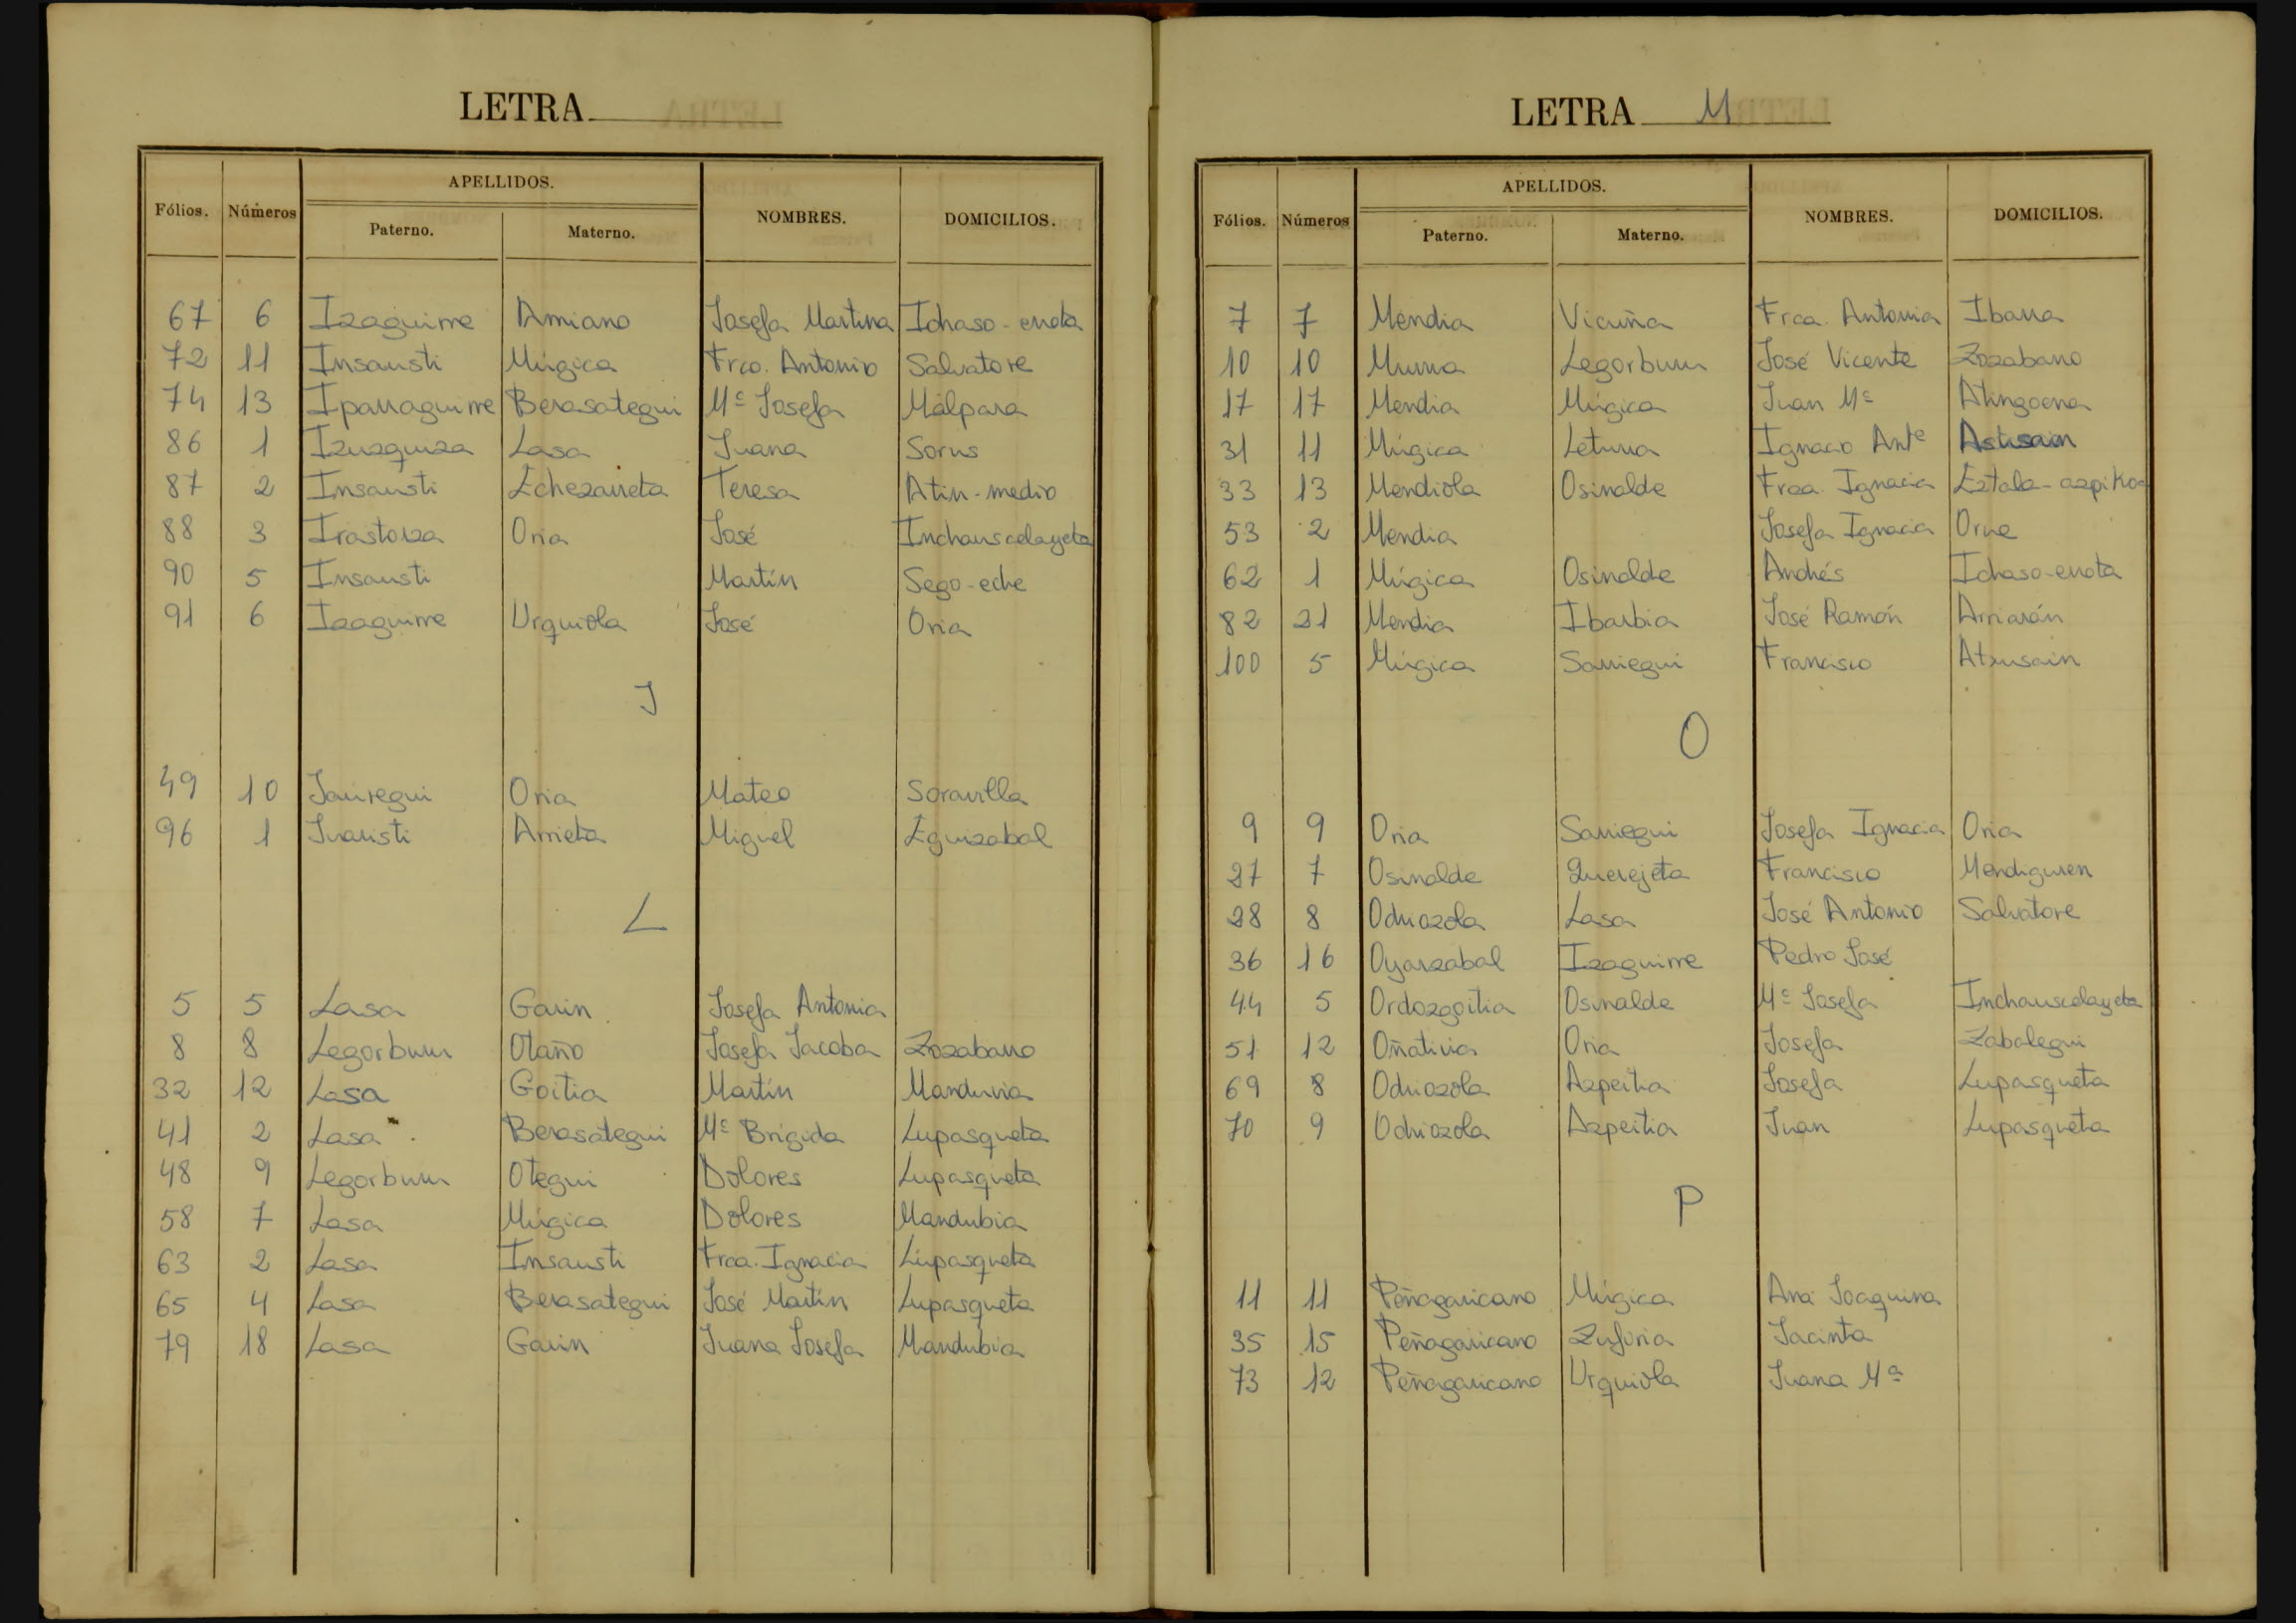 LETRA
APELLIDOS.
Fólios. Números Paterno. Materno. NOMBRES. DOMICILIOS.
67 6 Izaguirre Amiano Josefa Martina Ichaso-erota
72 11 Insausti Múgica Frco. Antonio Salvatore
74 13 Iparraguirre Berasategui Mª Josefa Málpara
86 1 Izuzquiza Lasa Juana Sorus
87 2 Insausti Echezarreta Teresa Atin-medio
88 3 Irastorza Oria José Inchauscelayeta
90 5 Insausti Martín Sego-eche
91 6 Izaguirre Urquiola José Oria
J
49 10 Jauregui Oria Mateo Soravilla
96 1 Juaristi Arrieta Miguel Eguizabal
L
5 5 Lasa Garin Josefa Antonia
8 8 Legorburu Otaño Josefa Jacoba Zozabarro
32 12 Lasa Goitia Martín Manduvia
41 2 Lasa Berasategui Mª Brígida Lupasqueta
48 9 Legorburu Otegui Dolores Lupasqueta
58 7 Lasa Múgica Dolores Mandubia
63 2 Lasa Insausti Frca. Ignacia Lupasqueta
65 4 Lasa Berasategui José Martín Lupasqueta
79 18 Lasa Garin Juana Josefa Mandubia
LETRA M
APELLIDOS.
Fólios. Números Paterno. Materno. NOMBRES. DOMICILIOS.
7 7 Mendia Vicuña Frca. Antonia Ibarra
10 10 Murua Legorburu José Vicente Zozabarro
17 17 Mendia Múgica Juan Mª Atingoena
31 11 Múgica Leturia Ignacio Ante
33 13 Mendiola Osinalde Frca. Ignacia Eztala-azpikoa
53 2 Mendia Josefa Ignacia Orue
62 1 Múgica Osinalde Andrés Ichaso-erota
82 21 Mendia Ibarbia José Ramón Arriarán
100 5 Múgica Sarriegui Francisco Atxusain
O
9 9 Oria Sarriegui Josefa Ignacia Oria
27 7 Osinalde Querejeta Francisco Mendiguren
28 8 Odriozola Lasa José Antonio Salvatore
36 16 Oyarzabal Izaguirre Pedro José
44 5 Ordozgoitia Osinalde Mª Josefa Inchauscelayeta
51 12 Oñativia Oria Josefa Zabalegui
69 8 Odriozola Azpeitia Josefa Lupasqueta
70 9 Odriozola Azpeitia Juan Lupasqueta
P
11 11 Peñagaricano Múgica Ana Joaquina
35 15 Peñagaricano Zufiria Jacinta
73 12 Peñagaricano Urquiola Juana Mª